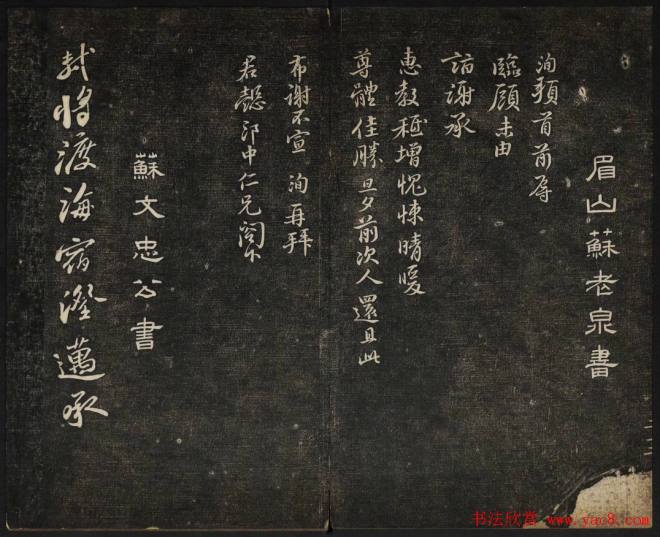 眉山蘇老泉書
洵頓首前辱
臨顧未由
詣謝承
惠教秪增愧悚晴暖
尊體佳勝旦夕前次人還且此
布謝不宣 洵再拜
君懿郎中仁兄閣下
蘇文忠公書
軾將渡海宿澄邁承
书法欣赏
www.yac8.com